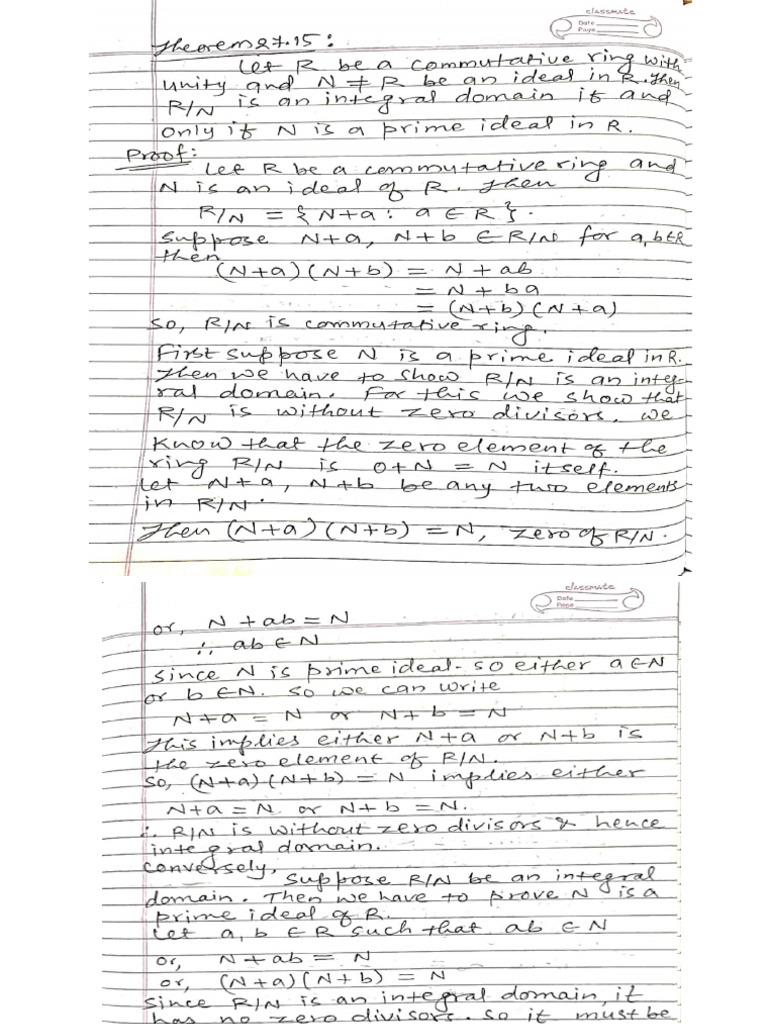 classmate
Date
Page
Theorem 27.15:
Let R be a commutative ring with
unity and N ≠ R be an ideal in R. Then
R/N is an integral domain if and
only if N is a prime ideal in R.
Proof:
Let R be a commutative ring and
N is an ideal of R. Then
R/N = {N+a : a ∈ R}.
Suppose N+a, N+b ∈ R/N for a, b∈R
then
(N+a)(N+b) = N + ab
= N + ba
= (N+b)(N+a)
So, R/N is commutative ring.
First suppose N is a prime ideal in R.
Then we have to show R/N is an integ-
ral domain. For this we show that
R/N is without zero divisors. we
know that the zero element of the
ring R/N is 0+N = N itself.
Let N+a, N+b be any two elements
in R/N.
Then (N+a)(N+b) = N, zero of R/N.
classmate
Date
Page
or, N + ab = N
∴ ab ∈ N
Since N is prime ideal. So either a∈N
or b ∈N. So we can write
N+a = N or N+b = N
This implies either N+a or N+b is
the zero element of R/N.
So, (N+a)(N+b) = N implies either
N+a = N or N+b = N.
∴ R/N is without zero divisors & hence
integral domain.
Conversely,
Suppose R/N be an integral
domain. Then we have to prove N is a
prime ideal of R.
Let a, b ∈ R such that ab ∈ N
or, N+ab = N
or, (N+a)(N+b) = N
Since R/N is an integral domain, it
has no zero divisors. So it must be